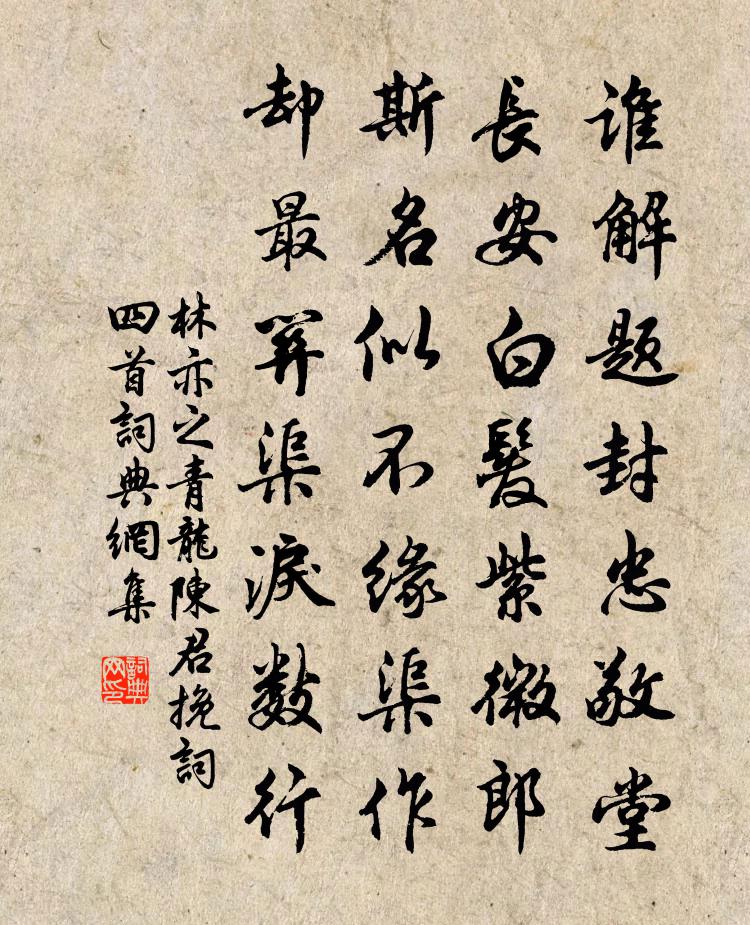 谁解題封忠敬堂
長安白髮紫微郎
斯名似不緣渠作
却最関渠淚數行
林亦之青龍陳君挽詞
四首詞典網集
詞典
网印